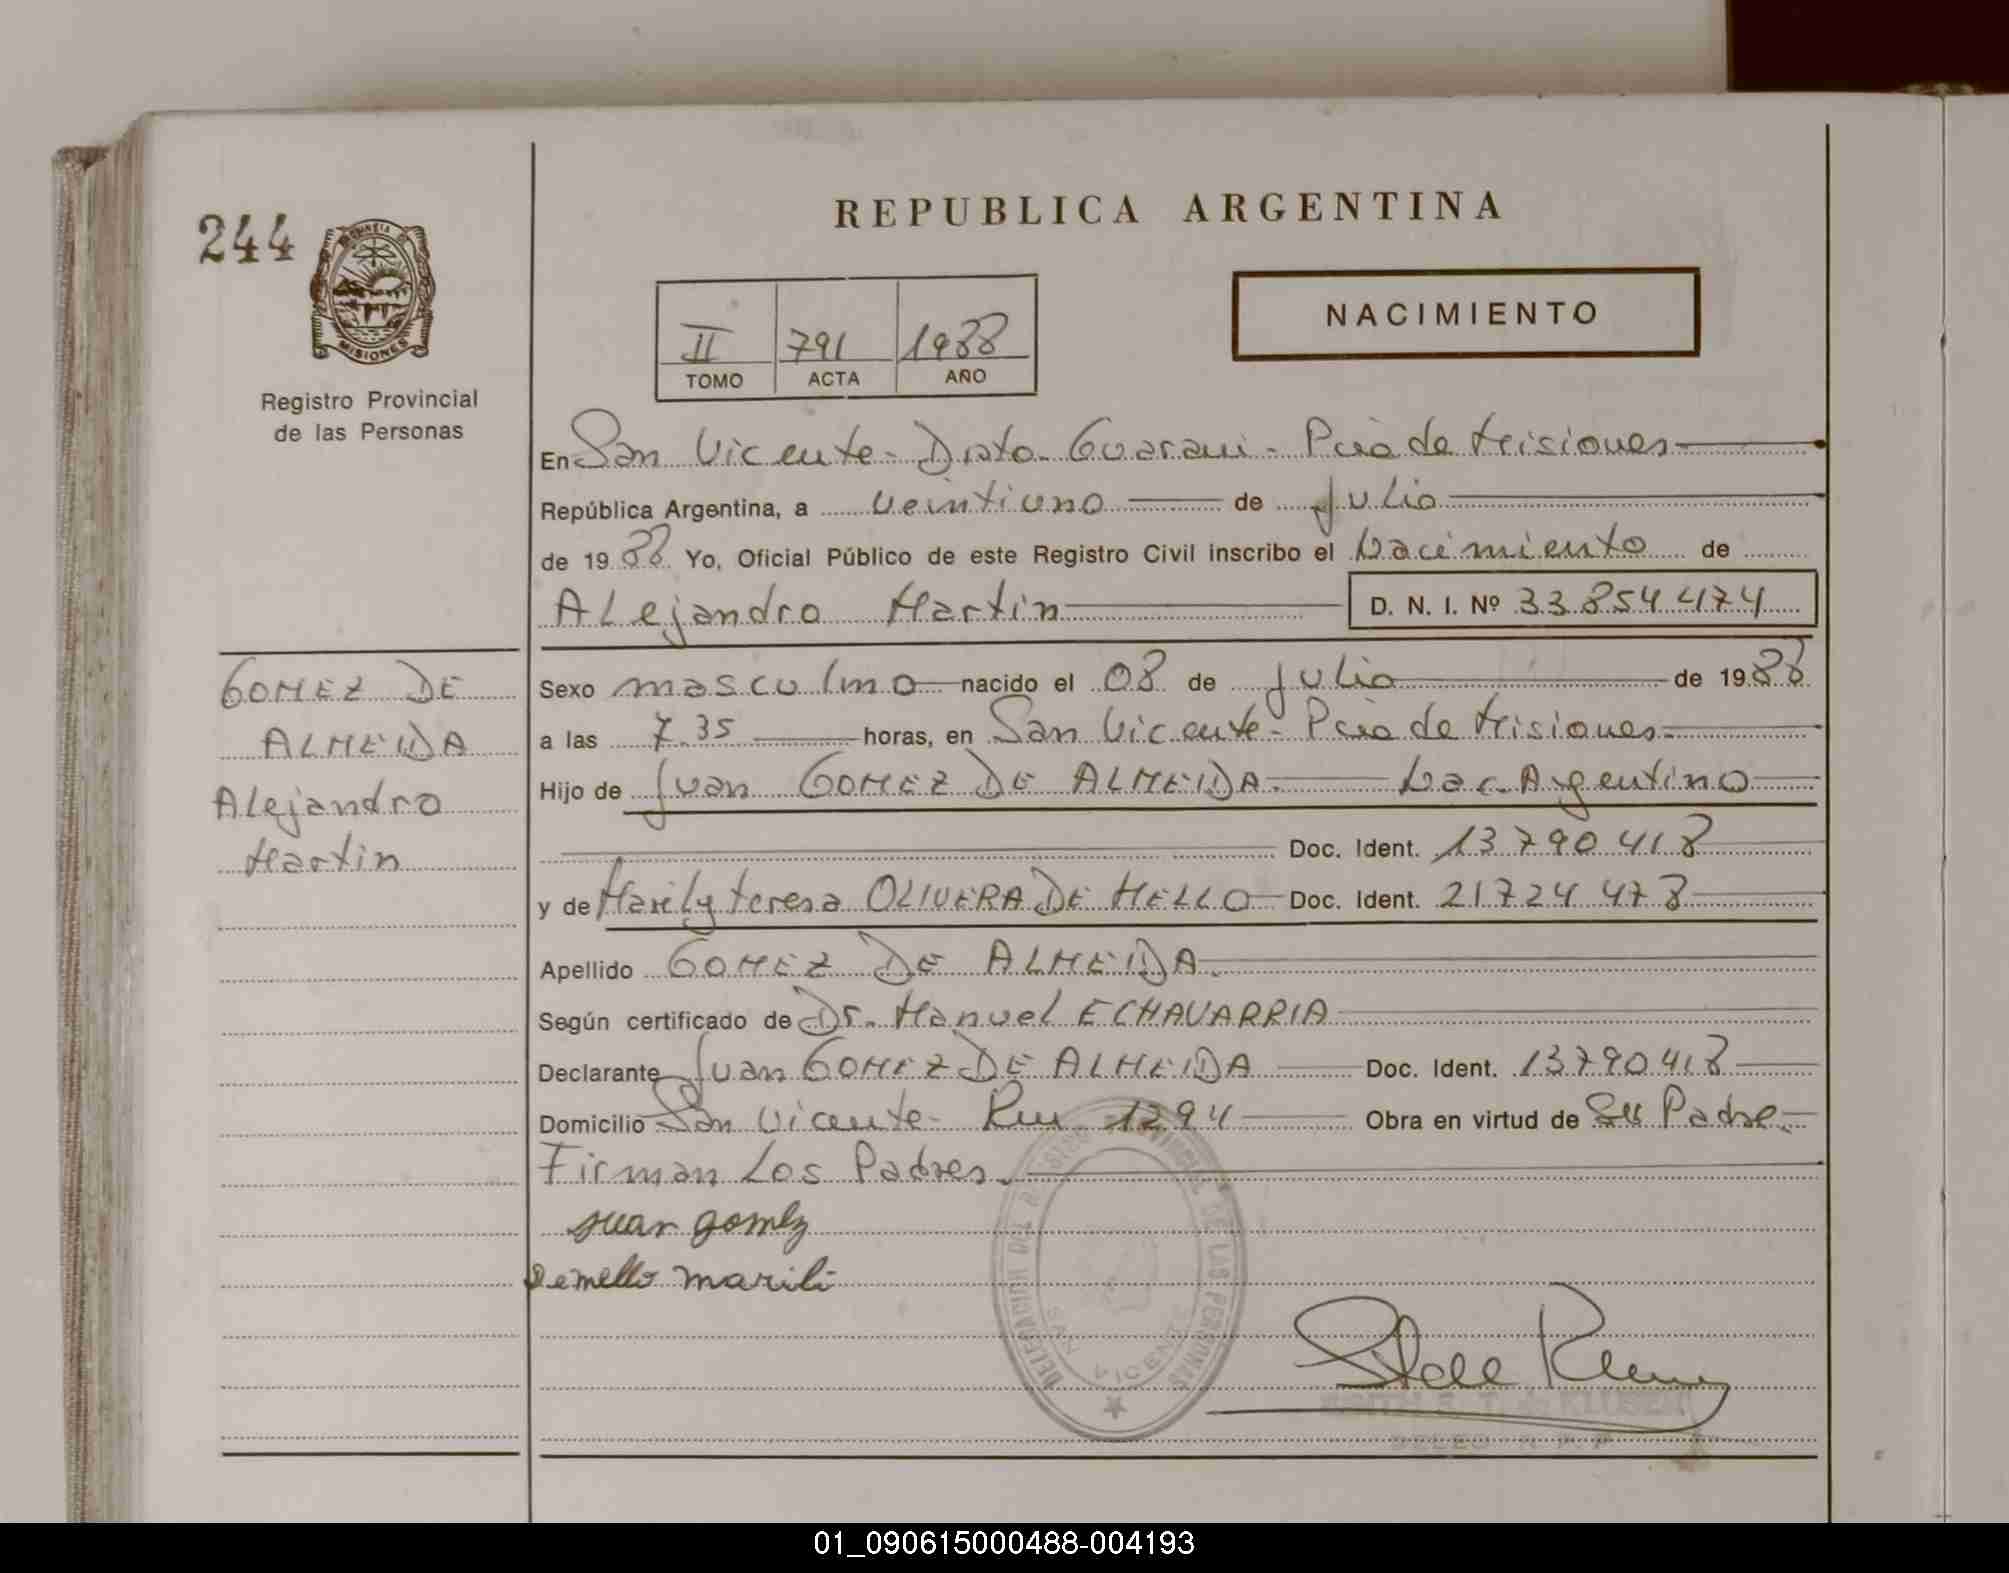 REPUBLICA ARGENTINA
244
PROVINCIA DE
MISIONES
Registro Provincial
de las Personas
II 791 1988
TOMO ACTA AÑO
NACIMIENTO
En San Vicente - Dpto. Guarani - Pcia de Misiones
República Argentina, a veintiuno de Julio
de 1988 Yo, Oficial Público de este Registro Civil inscribo el Nacimiento de
Alejandro Martin D. N. I. Nº 33.854.474
GOMEZ DE
ALMEIDA
Alejandro
Martin
Sexo masculino nacido el 08 de Julio de 1988
a las 7.35 horas, en San Vicente - Pcia de Misiones
Hijo de Juan GOMEZ DE ALMEIDA. Nac. Argentino
Doc. Ident. 13.790.418
y de Marily teresa OLIVERA DE MELLO Doc. Ident. 21.724.478
Apellido GOMEZ DE ALMEIDA.
Según certificado de Dr. Manuel ECHAVARRIA
Declarante Juan GOMEZ DE ALMEIDA Doc. Ident. 13.790.418
Domicilio San Vicente - Km 1294 Obra en virtud de Su Padre.
Firman Los Padres.
juan gomez
Demello marili
DELEGACION DEL REGISTRO PROVINCIAL DE LAS PERSONAS
SAN VICENTE
01_090615000488-004193